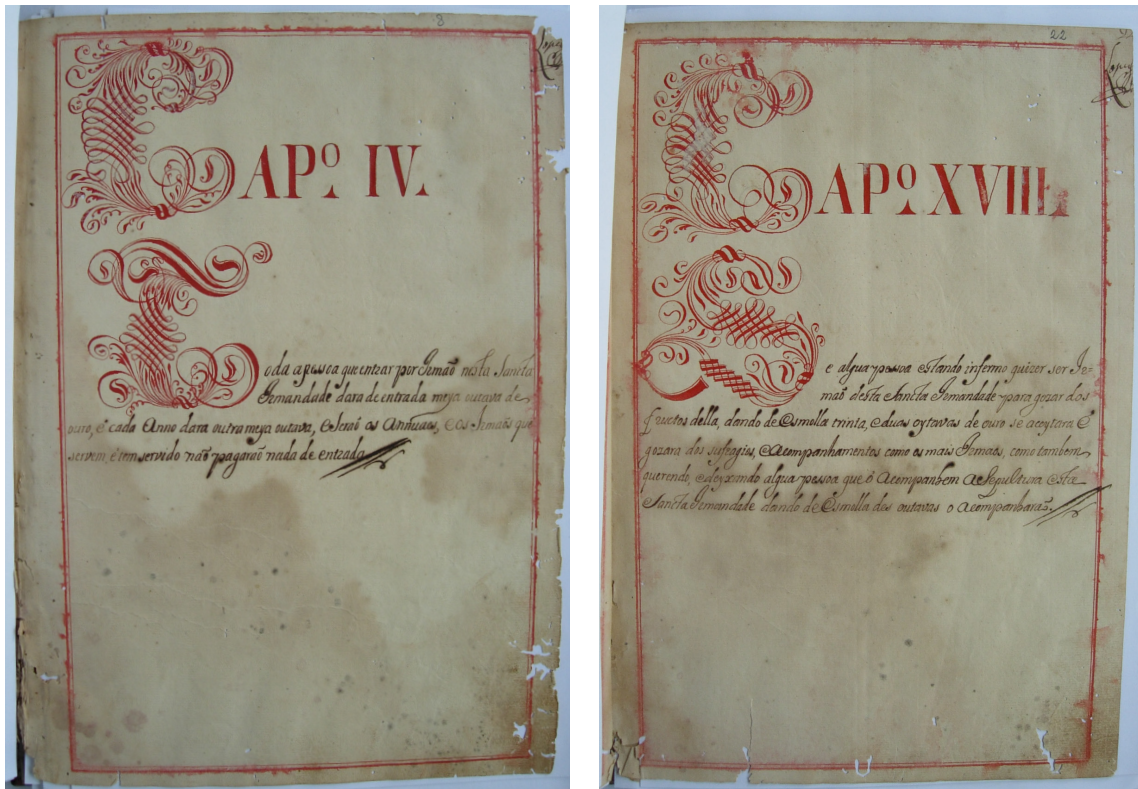 8
CAPº. IV.
Toda a pesoa que entrar por Irmaõ nesta Sancta
Irmandade dara de entrada meya outava de
ouro, e cada Anno dara outra meya outava, e Seraõ os Annuaes, e os Irmaõs que
servem, e tem servido naõ pagaraõ nada de entrada
22
CAPº. XVIII.
Se algua pessoa estando infermo quizer ser Ir-
maõ desta Sancta Irmandade para gozar dos
fructos della, dando de Esmolla trinta, e duas oytavas de ouro se aceytara E
gozara dos sufragios, e Acompanhamentos como os mais Irmaõs, como tambem
querendo, e deyxando algua pessoa que o Acompanhem a Sepultura esta
Sancta Irmandade dando de Esmolla des outavas o acompanharaõ.